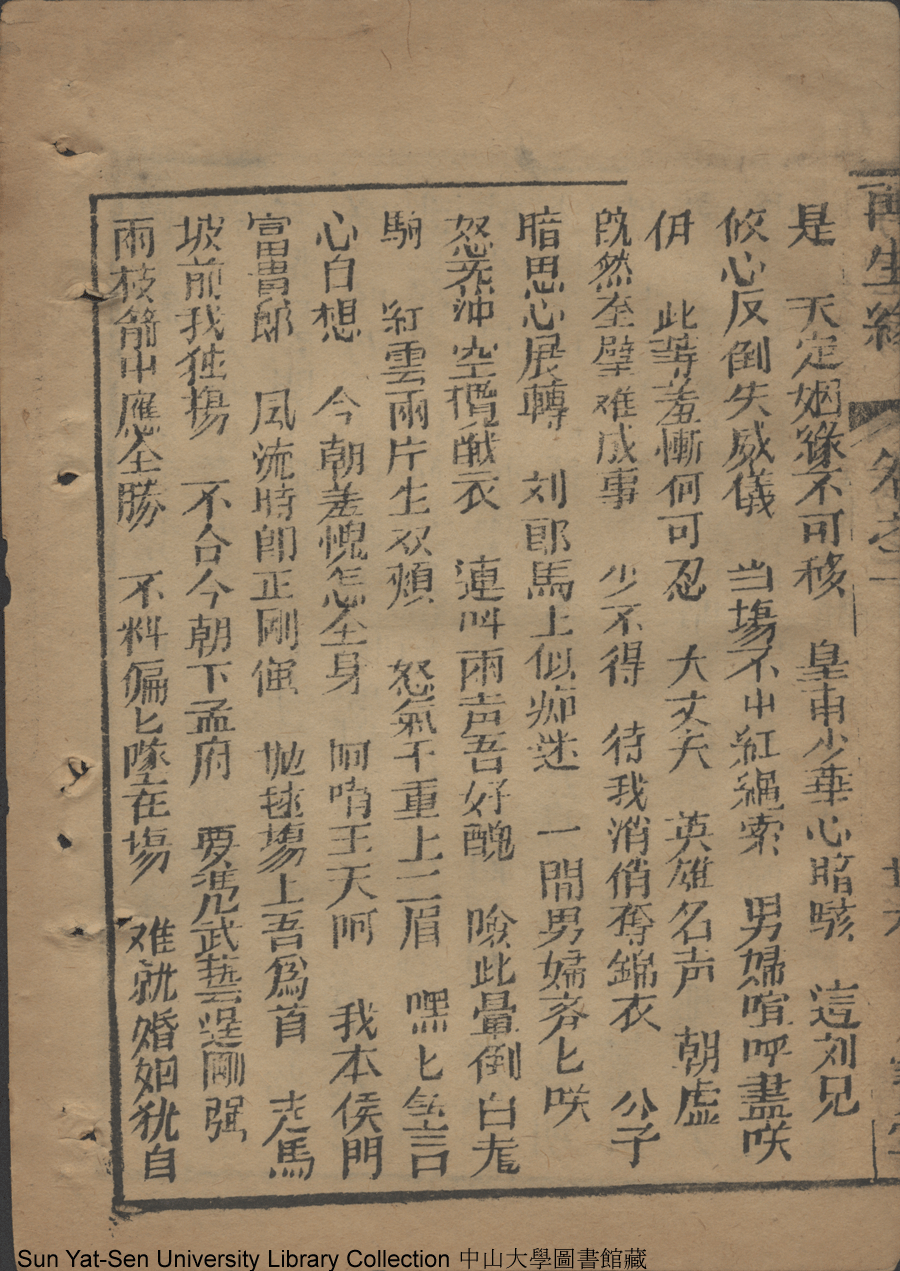 再生緣 卷之一
是 天定姻緣不可移 皇甫少華心暗駭 這刘兄
攸心反倒失威儀 当塲不中紅繩索 男婦喧呼盡咲
伊 此等羞慚何可忍 大丈夫 英雄名声 朝虚
既然至壁难成事 少不得 待我消俏奪錦衣 公子
暗思心展轉 刘郎馬上似痴迷 一閙男婦齐匕咲
怒氣沖空攬戰衣 連呌兩声吾好醜 險此暈倒白
駒 紅雲兩片生双頰 怒氣千重上二眉 嘿匕無言
心自想 今朝羞愧怎全身 呵唷王天呵 我本侯門
富貴郎 風流時即正剛催 抛毬塲上吾爲首 走馬
坡前我独揚 不合今朝下孟府 要凴武藝逞剛强
兩枝箭中應全勝 不料偏匕墜在塲 难就婚姻犹自
Sun Yat-Sen University Library Collection 中山大學圖書館藏